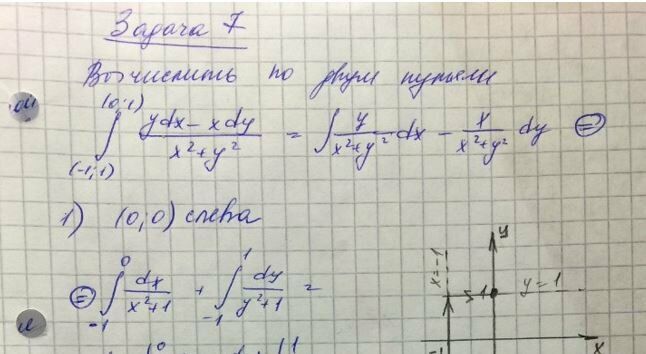 Задача 7
Вычислить по двум путям
∫_{(-1;1)}^{(0;1)} (ydx - xdy)/(x²+y²) = ∫ y/(x²+y²) dx - x/(x²+y²) dy =
1) (0,0) слева
= ∫_{-1}^{0} dx/(x²+1) + ∫_{-1}^{1} dy/(y²+1) =
y
x=-1
1
y=1
x